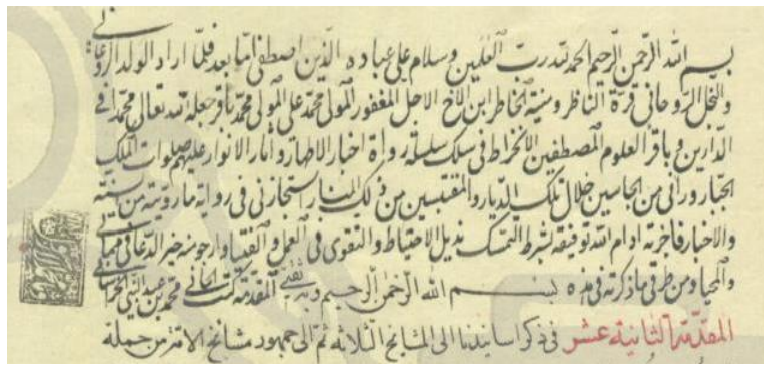 بسم الله الرحمن الرحيم الحمد لله رب العلمين وسلام على عباده الذين اصطفى اما بعد فلما اراد الولد
والنجل الروحاني قرة الناظر ومنية الخاطر ابن الاخ الاجل المغفور المولى محمد على المولى محمد باقر جعله الله تعالى محمدا في
الدارين وباقر العلوم المصطفين الانخراط في سلك سلسلة رواة اخبار الاطهار واثار الانوار عليهم صلوات الملك
الجبار وراني من الجاسين خلال تلك الديار والمقتبسين من ذلك المنار استجازني في رواية ما رويته من
والاخبار فاجزته ادام الله توفيقه بشرط التمسك بذيل الاحتياط والتقوى في العمل والفتيا وارجو منه خير الدعا في مماتي
والمحيا ومن طرقي ما ذكرته في هذه المقدمة كتب الجاني محمد بن عبد النبي
بسم الله الرحمن الرحيم وبه ثقتي
المقدمة الثانية عشر في ذكر اسانيدنا الى المشايخ الثلاثة ثم الى جمهور مشايخ الامة من جملة